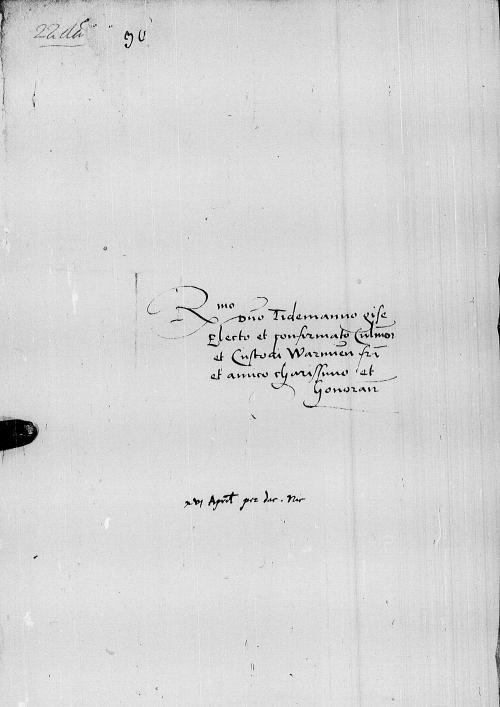 90
Rmo
Dno Tidemanno gise
Electo et confirmato Culmen
et Custodi Warmien fri
et amico charissimo et
honoran
xvi Aprilis per doc. Nic